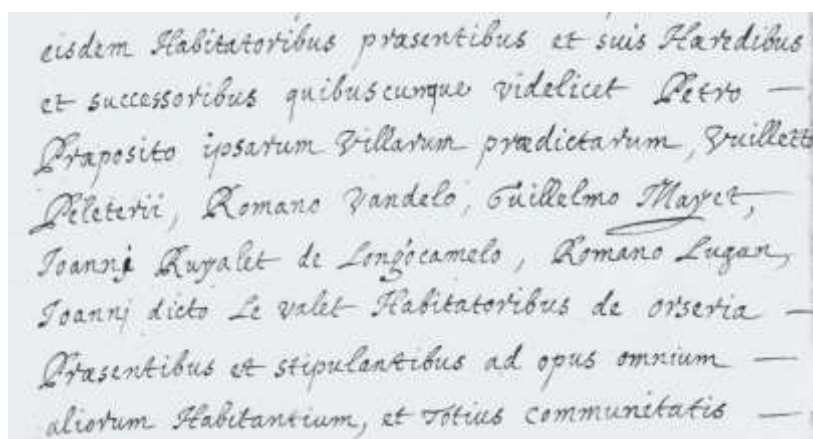 eisdem Habitatoribus præsentibus et suis Hæredibus
et successoribus quibuscumque videlicet Petro —
Præposito ipsarum Villarum prædictarum, Vuilletto
Peleterii, Romano Vandelo, Guillelmo Mayet,
Joanni Ruyalet de Longocamelo, Romano Lugan,
Joannj dicto Le valet Habitatoribus de orseria —
Præsentibus et stipulantibus ad opus omnium —
aliorum Habitantium, et totius communitatis —